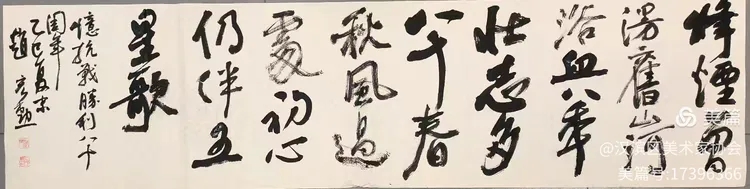 烽煙曾
蕩舊山河
浴血八年
壯志多
八十春
秋風過
處初心
仍伴五
星歌
憶抗戰勝利八十
周年
乙巳夏末
趙
美篇
@汉滨区美术家协会
美篇号:17396366